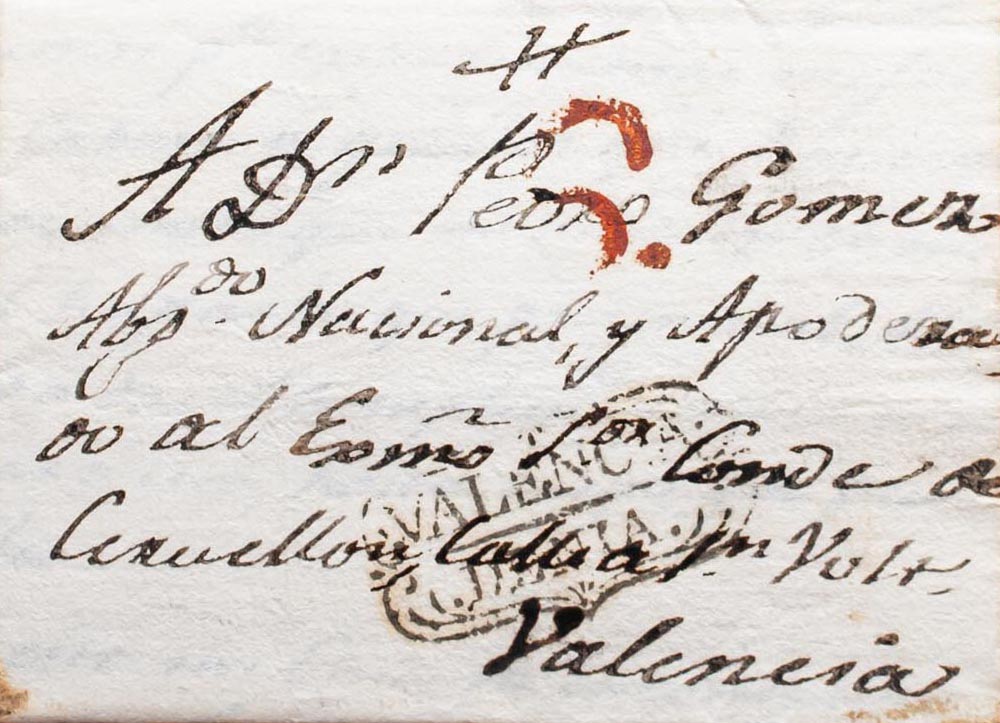 A Dn Pedro Gomez
Abgdo. Nacional, y Apodera
do al Exmo Sor Conde de
Cervellon, Calle a Sn
Valencia
VALENCIA